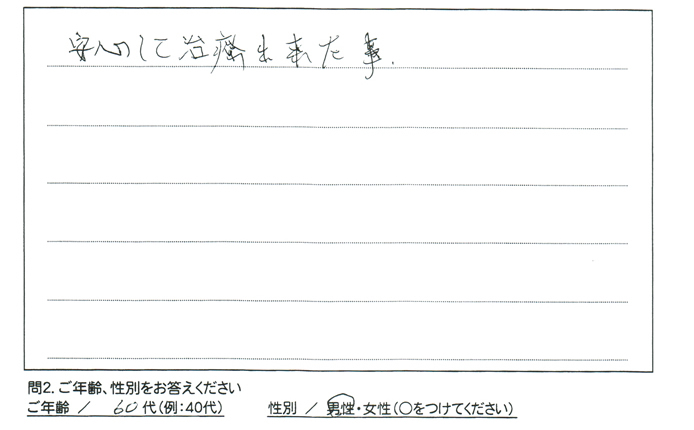 安心して治療出来た事.
問2. ご年齢、性別をお答えください
ご年齢 / 60代(例:40代) 性別 / 男性・女性(○をつけてください)